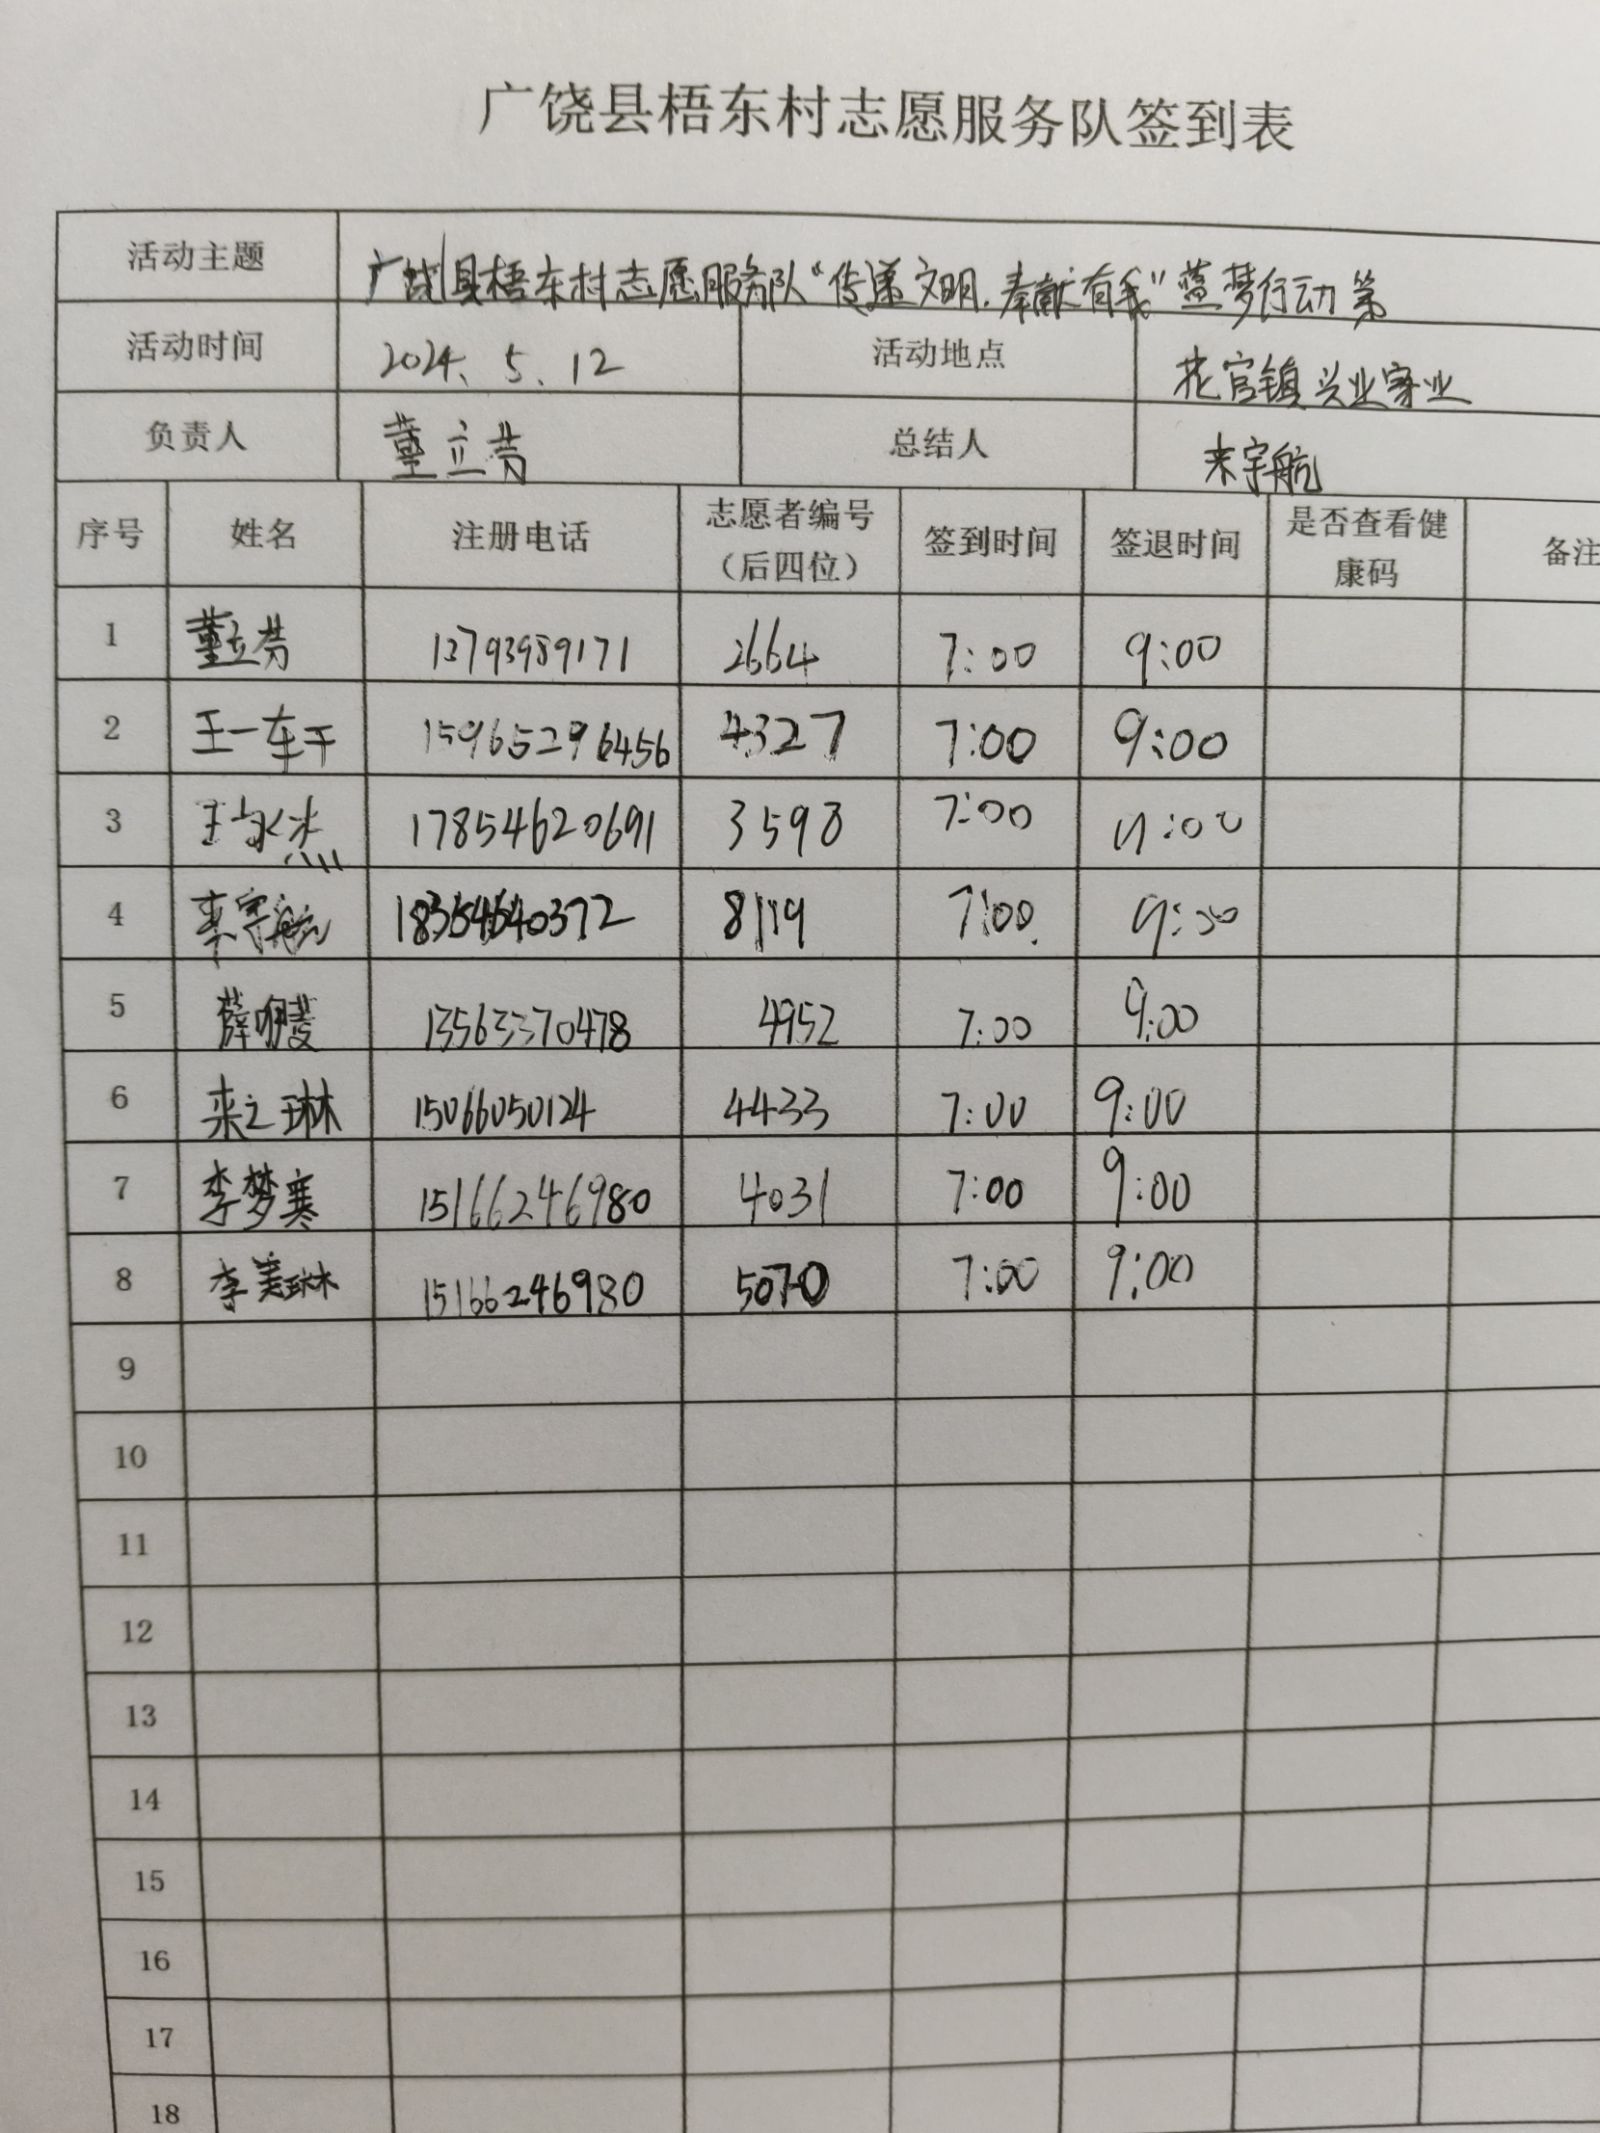 广饶县梧东村志愿服务队签到表
活动主题 广饶县梧东村志愿服务队“传递文明.奉献有我”蓝梦行动第
活动时间 2024.5.12 活动地点 花官镇兴业家业
负责人 董立芳 总结人 来宇航
序号 姓名 注册电话 志愿者编号（后四位） 签到时间 签退时间 是否查看健康码 备注
1 董立芳 13793989171 2664 7:00 9:00
2 王一轩 15965296456 4327 7:00 9:00
3 17854620691 3598 7:00 9:00
4 来宇航 18354640372 8119 7:00 9:00
5 13563370478 4952 7:00 9:00
6 来之琳 15066050124 4433 7:00 9:00
7 李梦寒 15166246980 4031 7:00 9:00
8 李美琳 15166246980 5070 7:00 9:00
9
10
11
12
13
14
15
16
17
18